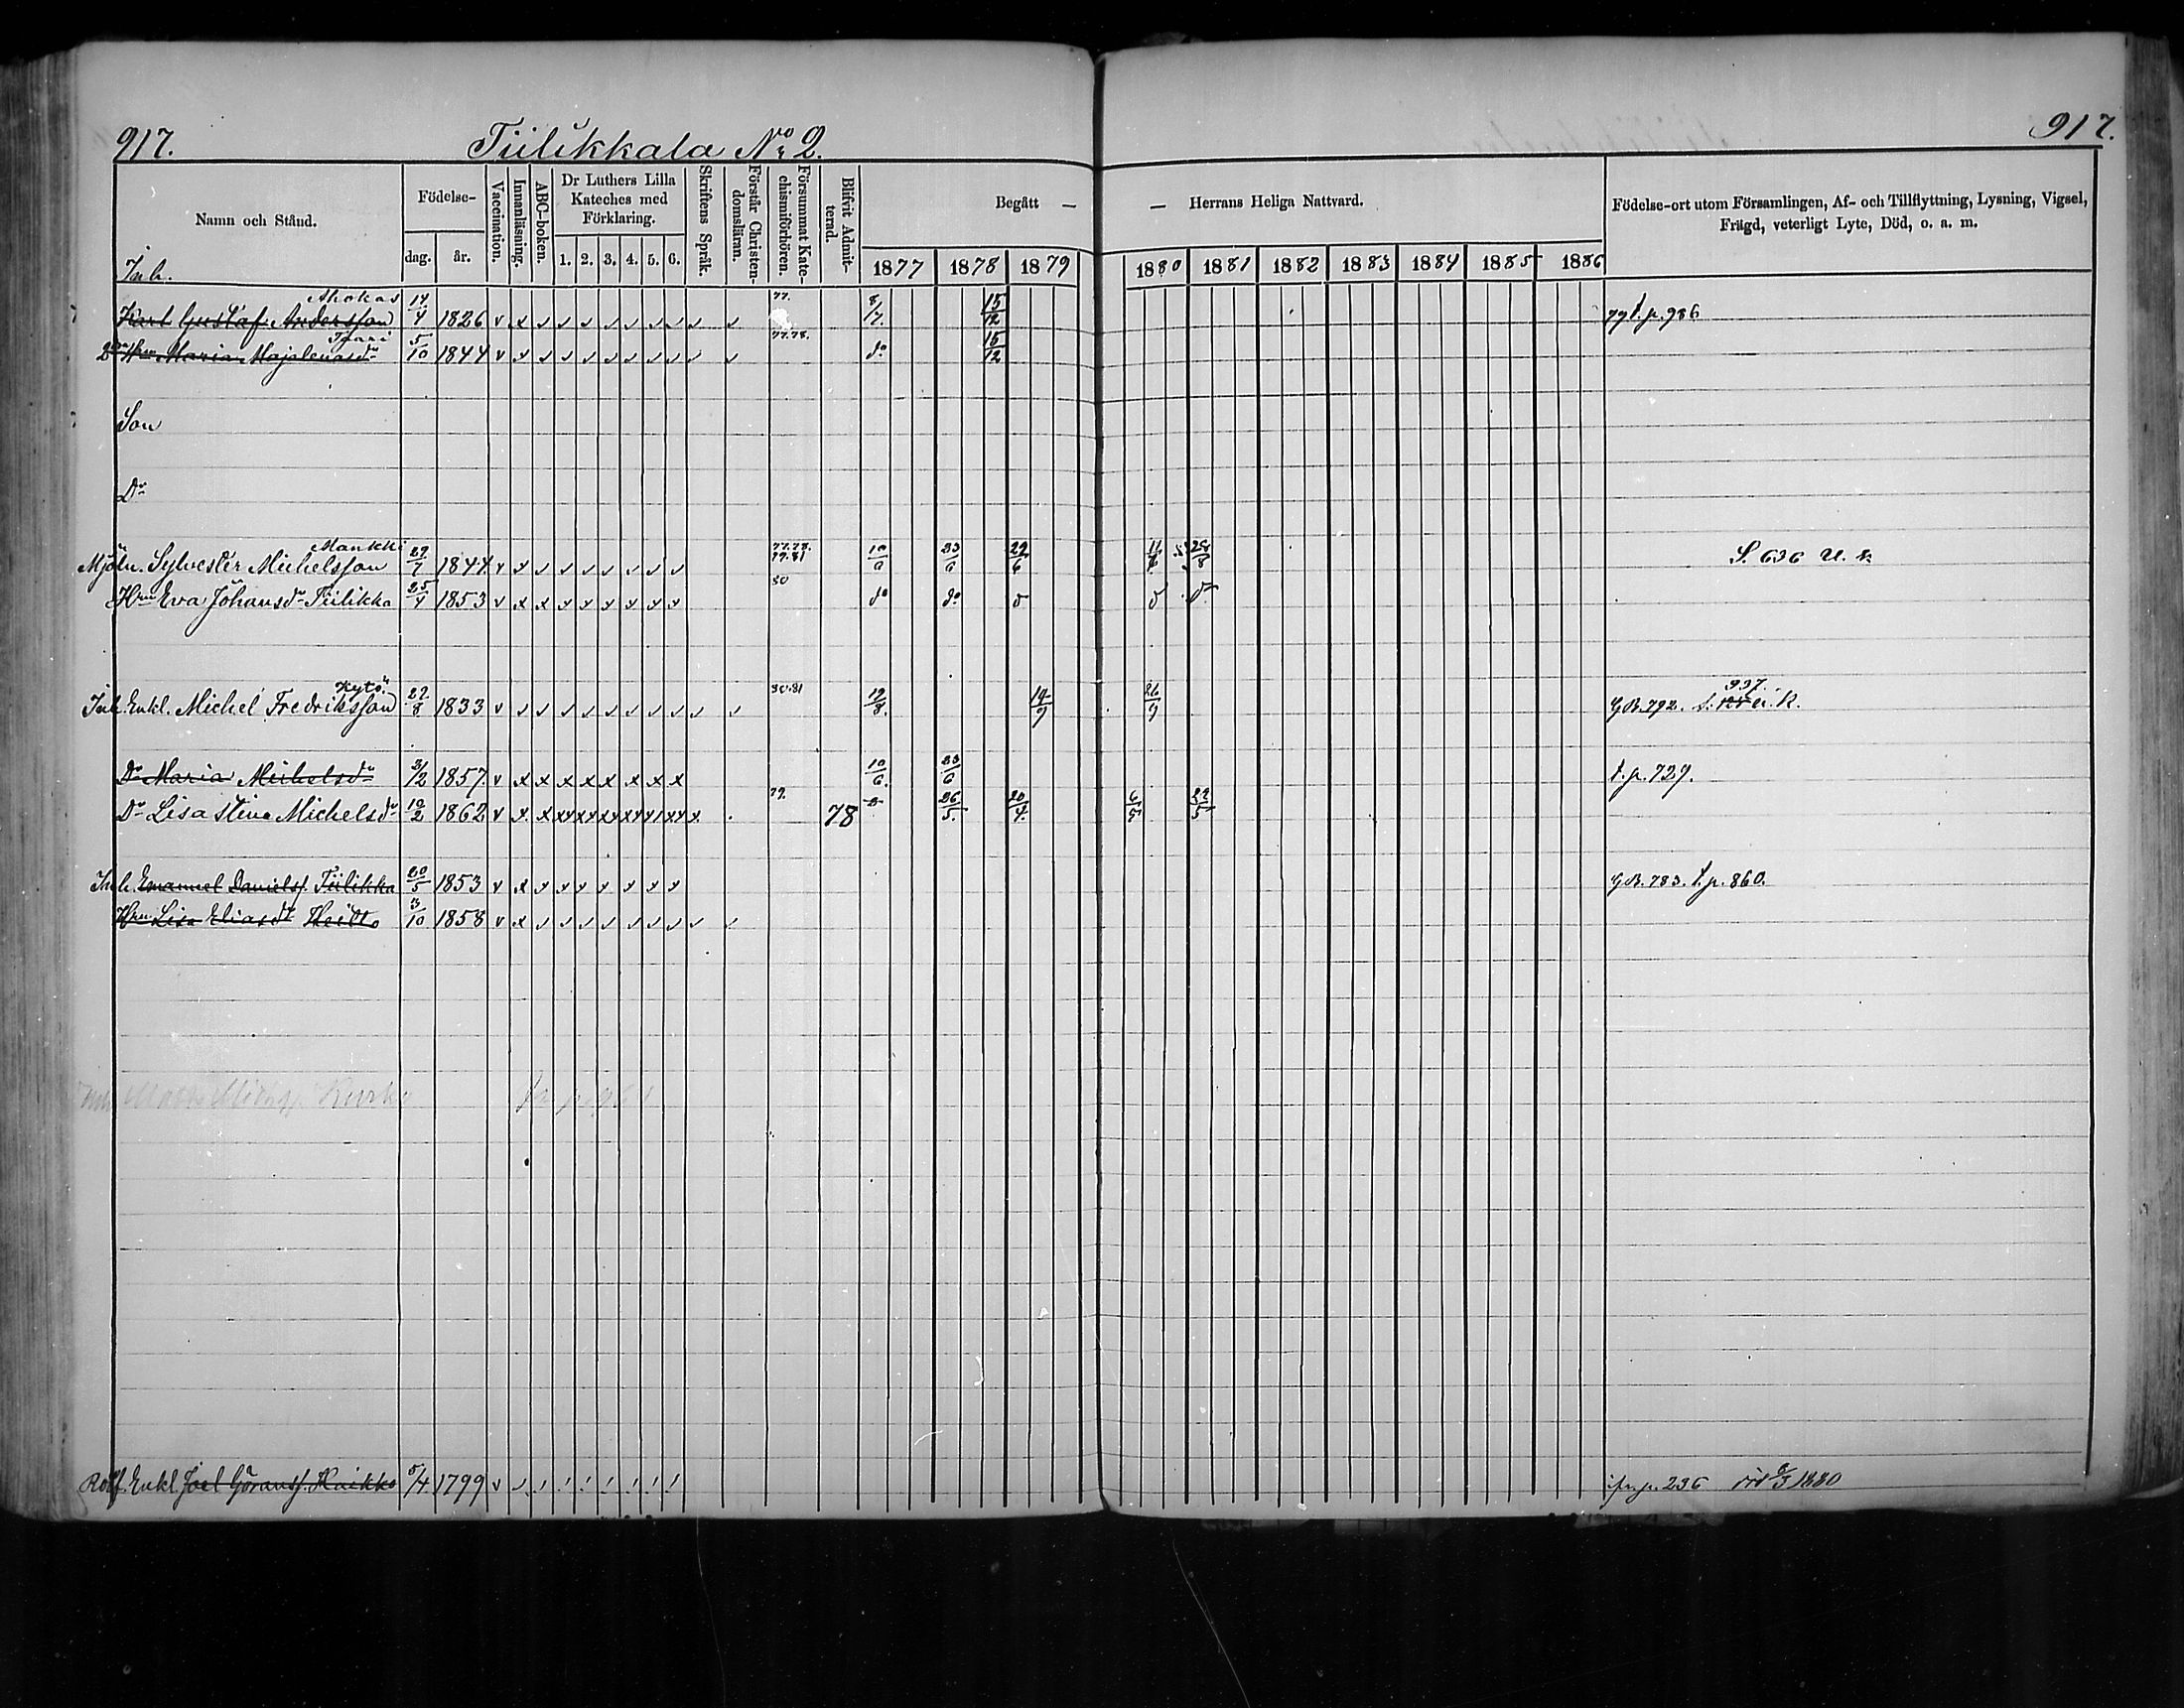 917. Tiilikkala No 2. 917.
Namn och Stånd. Födelse- dag. år. Vaccination. Innanläsning. ABC-boken. Dr Luthers Lilla Kateches med Förklaring. 1. 2. 3. 4. 5. 6. Skriftens Språk. Förstår Christendomsläran. Försummat Katechismiförhören. Blifvit Admitterad. Begått — — Herrans Heliga Nattvard. Födelse-ort utom Församlingen, Af- och Tillflyttning, Lysning, Vigsel, Frägd, veterligt Lyte, Död, o. a. m.
1877 1878 1879 1880 1881 1882 1883 1884 1885 1886
Inh.
Ahokas
Karl Gustaf Andersson 14/4 1826 v x 77. 8/7. 15/12 79 t.p. 986
Maria Majalenasdr 5/10 1844 v x 77.78. do 15/12
Son
Dr
Mankki
Mjöln. Sylvester Michelsson 29/7 1844 v x 77.78. 79.81 10/6 23/6 29/6 S. 636 u. k
Hru Eva Johansdr Tiilikka 25/4 1853 v x x x x x x x x 80 do do
Kytö
Inh. Enkl. Michel Fredriksson 27/8 1833 v 30.81 12/8. 14/9 26/9 GB. 792. 937. u. K.
Dr Maria Michelsdr 2/2 1857. v x x x x x x x x 10/6. 23/6 t.p. 729.
Dr Lisa Stina Michelsdr 10/2 1862 v x x 79. 78 26/5. 20/4. 6/5 22/5
Inh. Emanuel Danielss. Tiilikka 20/5 1853 v x x x x x x x x GB. 783. t.p. 860.
Hru Lisa Eliasdr 3/10 1858 v x
Enkl. Joel Göranss. Kaikko 5/4 1799 v fr. p. 236 död 8/3 1880